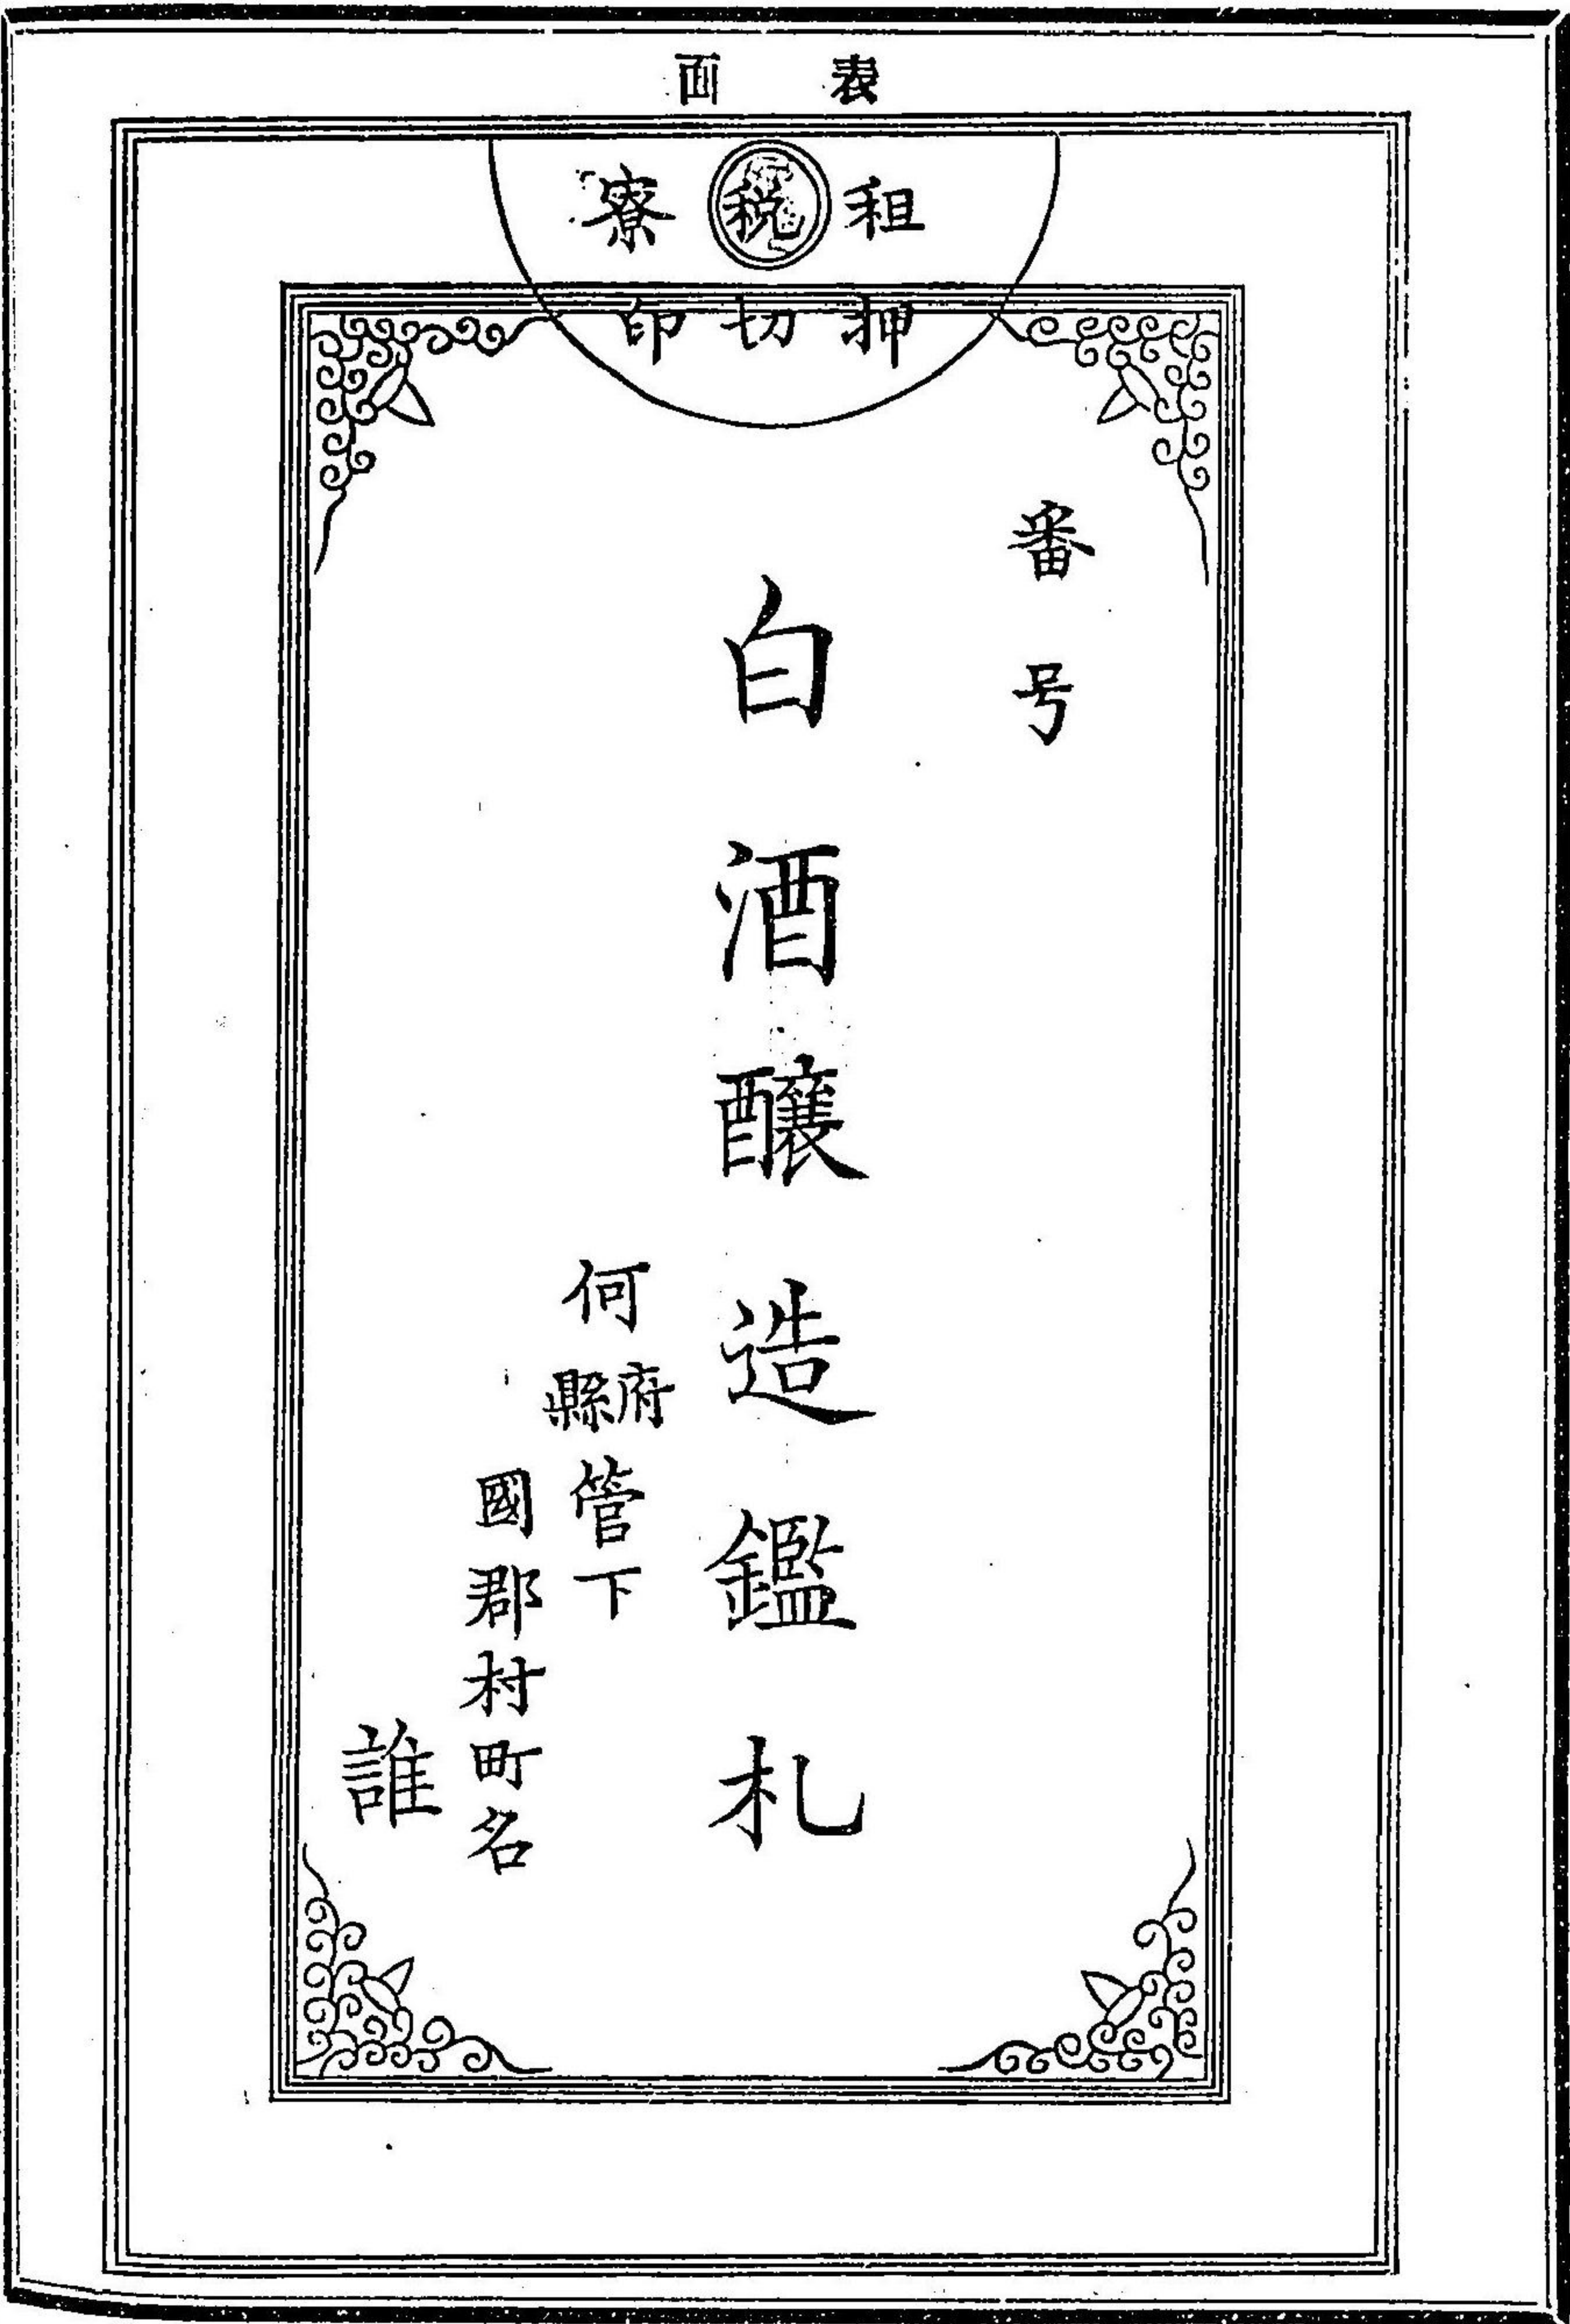 表面
租税寮
押切印
番号
白酒醸造鑑札
何府縣管下
國郡村町名
誰